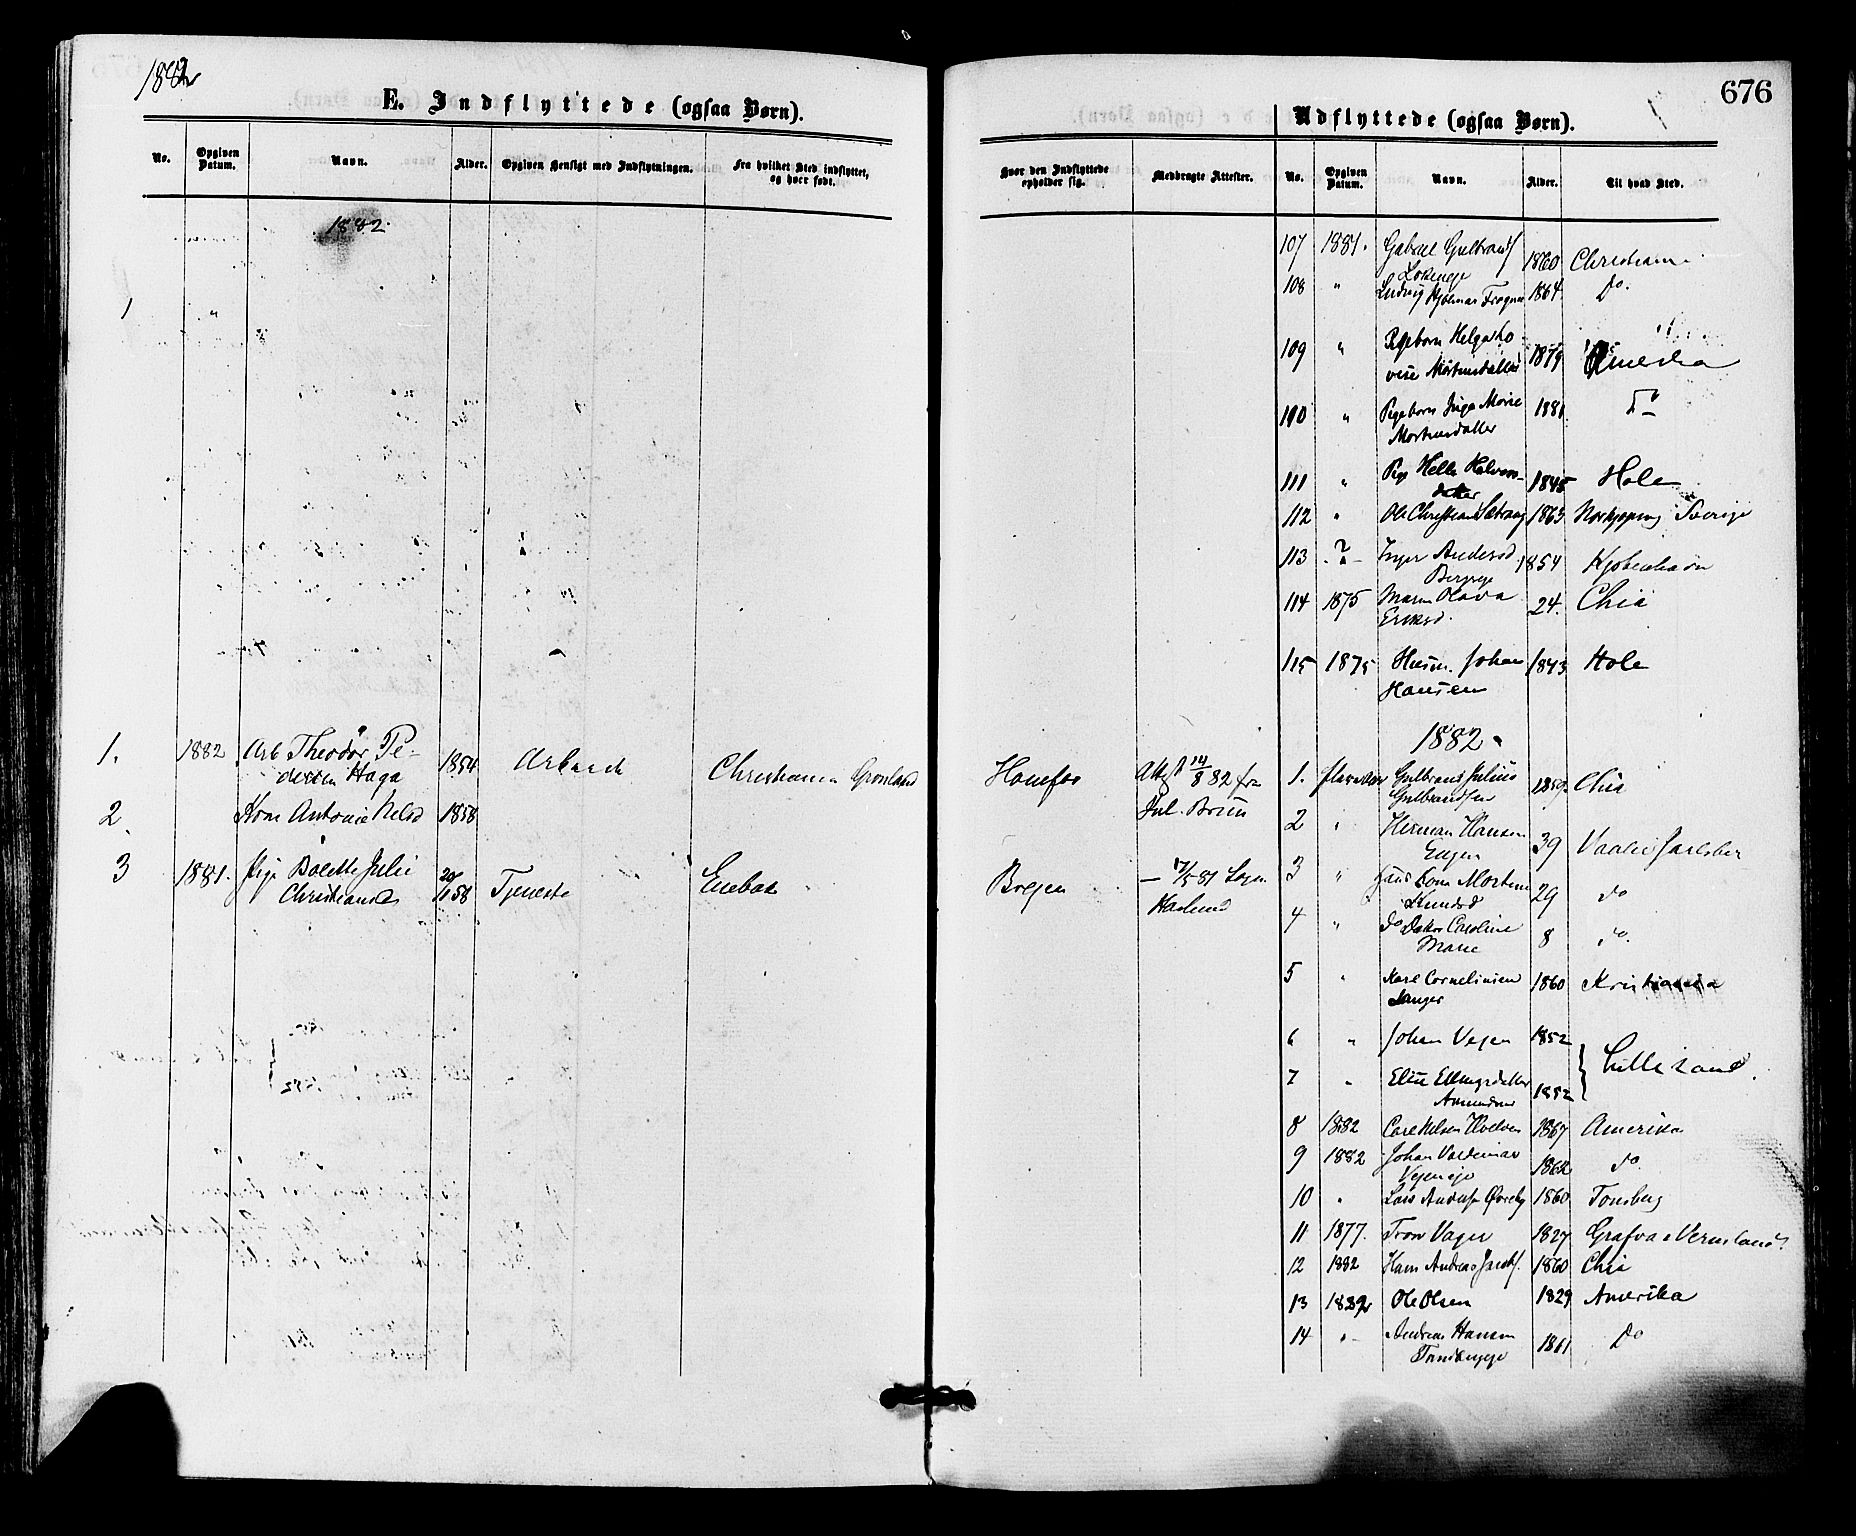 1882
E. Indflyttede (ogsaa Børn).
No. Opgiven Datum. Navn. Alder. Opgiven Hensigt med Indflytningen. Fra hvilket Sted indflyttet, og hvor født.
1882.
1. 1882 Arb Theodor Pe-
dersen Haga 1854 Arbeide Christiania Grønland
2 Kone Antonie Nelsd 1858
3 1881. Pige Bolette Julie
Christiansd 58 Tjeneste Enebak
676
Udflyttede (ogsaa Børn).
Hvor den Indflyttede opholder sig. Medbragte Attester. No. Opgiven Datum. Navn. Alder. Til hvad Sted.
Hønefos Attest 14/8 82 fra
Jul. Bruun
Bregen — 17/5 81 Sogn.
Haslund
107 1881. Gabriel Gulbrands
1860 Christiania
108 " Ludvig Hjalmar Frogner 1864. Do.
109 " Pigebarn Helga Lo
vise Mortensdatter 1879 Amerika
110 " Pigebarn Inga Marie
Mortensdatter 1881 Do
111 " Pige Helle Halvors-
datter 1845 Hole
112 " Ole Christian Sætrang 1863 Norkjøping Sverige
113 - ? - Inger Andersd.
1854 Kjøbenhavn
114 1875 Maren Olava
Eriksd. 24. Chia
115 1875 Husm. Johan
Hansen 1843 Hole
1882.
1. Gulbrand Julius
Gulbrandsen 1859. Chia
2 " Herman Hansen
Engen 39 Vaale Jarlsber
3 " Hans Kone Mortine
Knudsd 29 do
4 " do Datter Caroline
Marie 8 do.
5 " Karl Corneliusen
1860 Kristiania
6 " Johan Vegen 1852
Lillesand.
7 " Elise Ellingsdatter
1852
8 1882 Carl Nelsen 1867 Amerika
9 1882 Johan Valdemar
Vegeneje 1862 do.
10 " Lars Anders Øvreby 1860 Tønsberg
11 1877. Tron Vager 1827 Grafva i Vermland
12 1882 Hans Andreas Jacobs. 1860 Chia
13 1882 Ole Olsen 1829 Amerika
14 " - Andreas Hansen
1861 Do